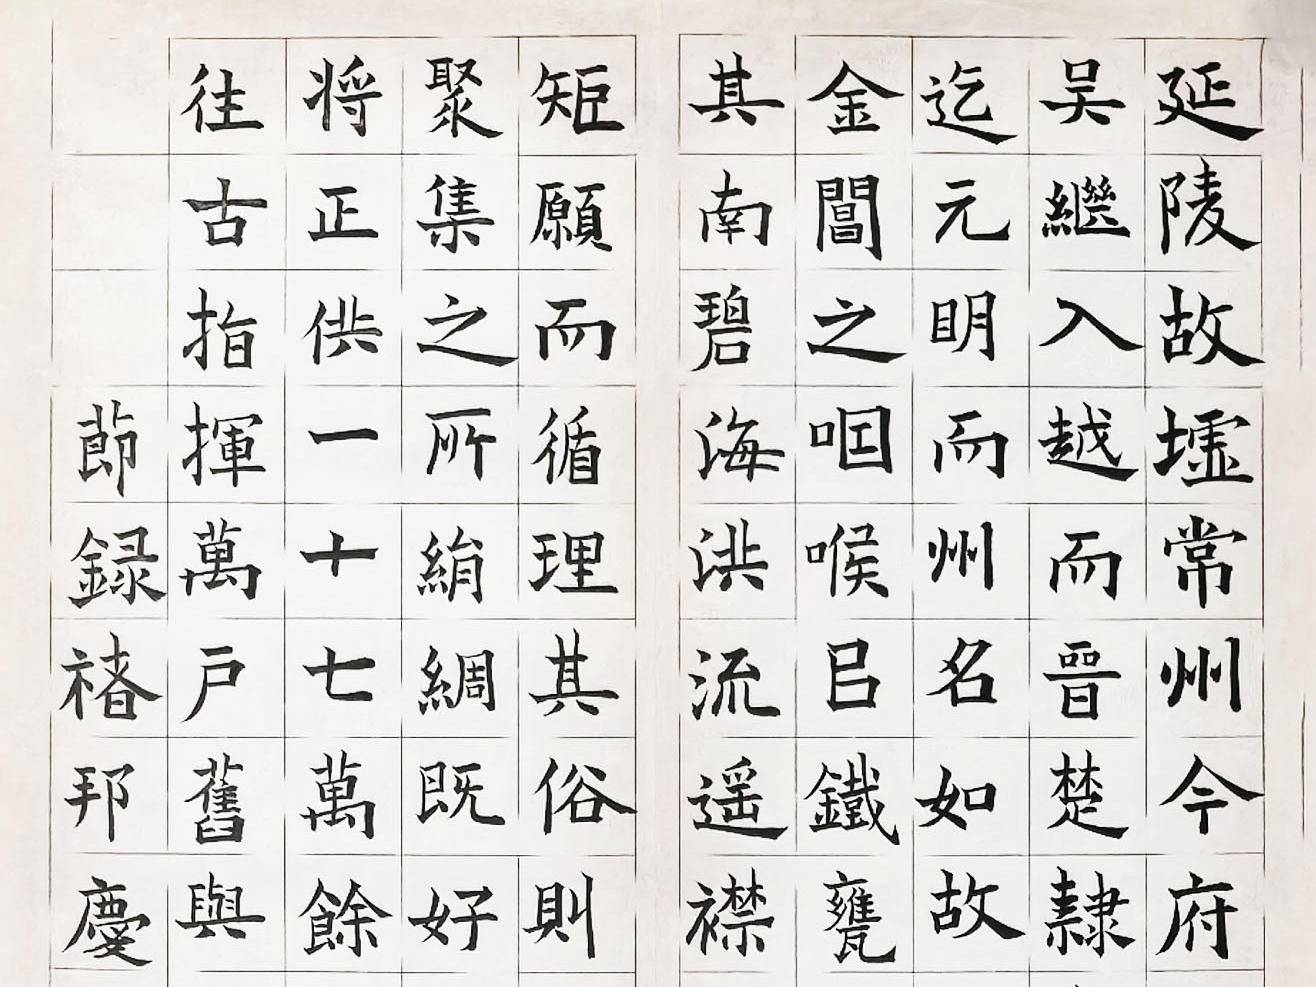 延陵故墟常州今府
吴繼入越而晉楚隷
迄元明而州名如故
金閶之咽喉㠯鐵甕
其南碧海洪流遥襟
矩願而循理其俗則
聚集之所絹綢既好
将正供一十七萬餘
往古指揮萬戸舊與
節録禇邦慶